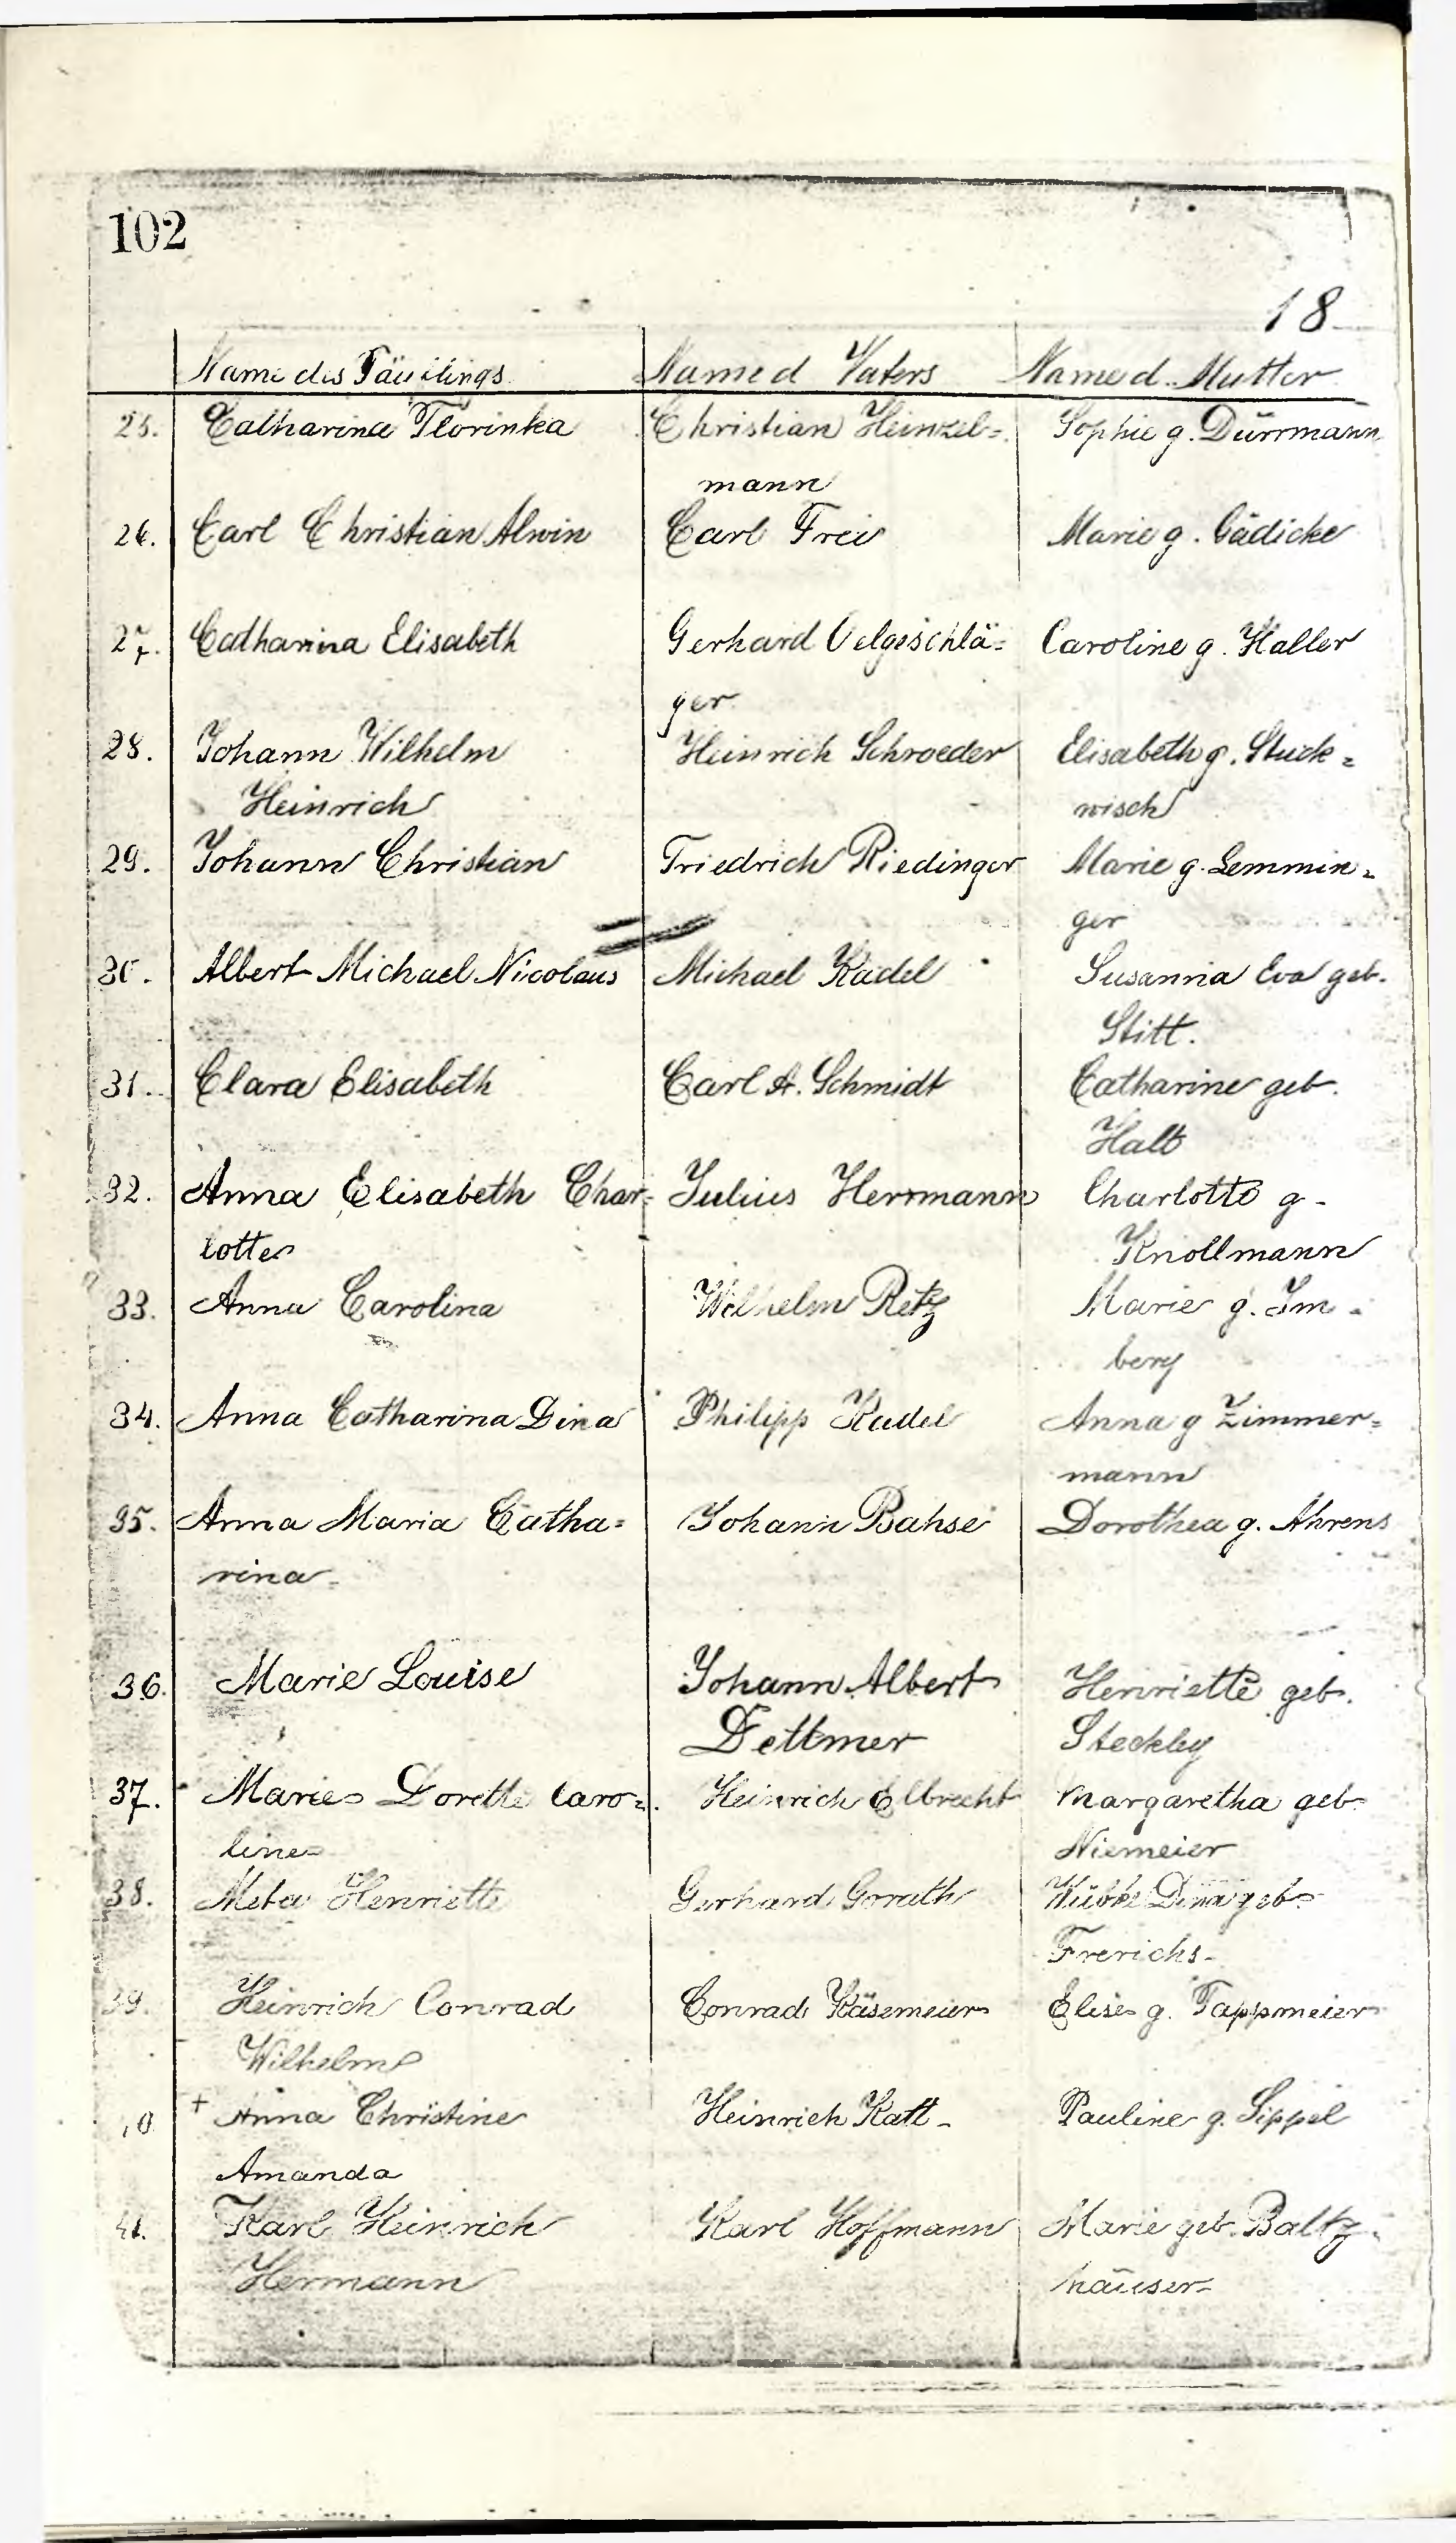 102
18
Name des Täuflings Name d Vaters Name d. Mutter
25. Catharina Florinka Christian Heinzel= Sophie g. Dürrmann
mann
26. Carl Christian Alwin Carl Frei Marie g. Gädicke
27. Catharina Elisabeth Gerhard Oelgeschlä= Caroline g. Haller
ger
28. Johann Wilhelm Heinrich Schroeder Elisabeth g. Stuck=
Heinrich wisch
29. Johann Christian Friedrich Riedinger Marie g. Lemmin=
ger
30. Albert Michael Nicolaus Michael Kadel Susanna Eva geb.
Stitt.
31. Clara Elisabeth Carl A. Schmidt Catharine geb.
Halt
32. Anna Elisabeth Char= Julius Herrmann Charlotte g.
lotte Knollmann
33. Anna Carolina Wilhelm Retz Marie g. Im=
berg
34. Anna Catharina Dina Philipp Kadel Anna g Zimmer=
mann
35. Anna Maria Catha= Johann Bahse Dorothea g. Ahrens
rina
36. Marie Louise Johann Albert Henriette geb.
Dettmer Steckley
37. Marie Dorette Caro= Heinrich Elbrecht Margaretha geb.
line Niemeier
38. Meta Henriette Gerhard Grath Wübke Dina geb.
Frerichs
39. Heinrich Conrad Conrad Käsemeier Elise g. Tappmeier
Wilhelm
+ Anna Christine Heinrich Katt Pauline g. Sippel
Amanda
41. Karl Heinrich Karl Hoffmann Marie geb. Baltz=
Hermann häuser